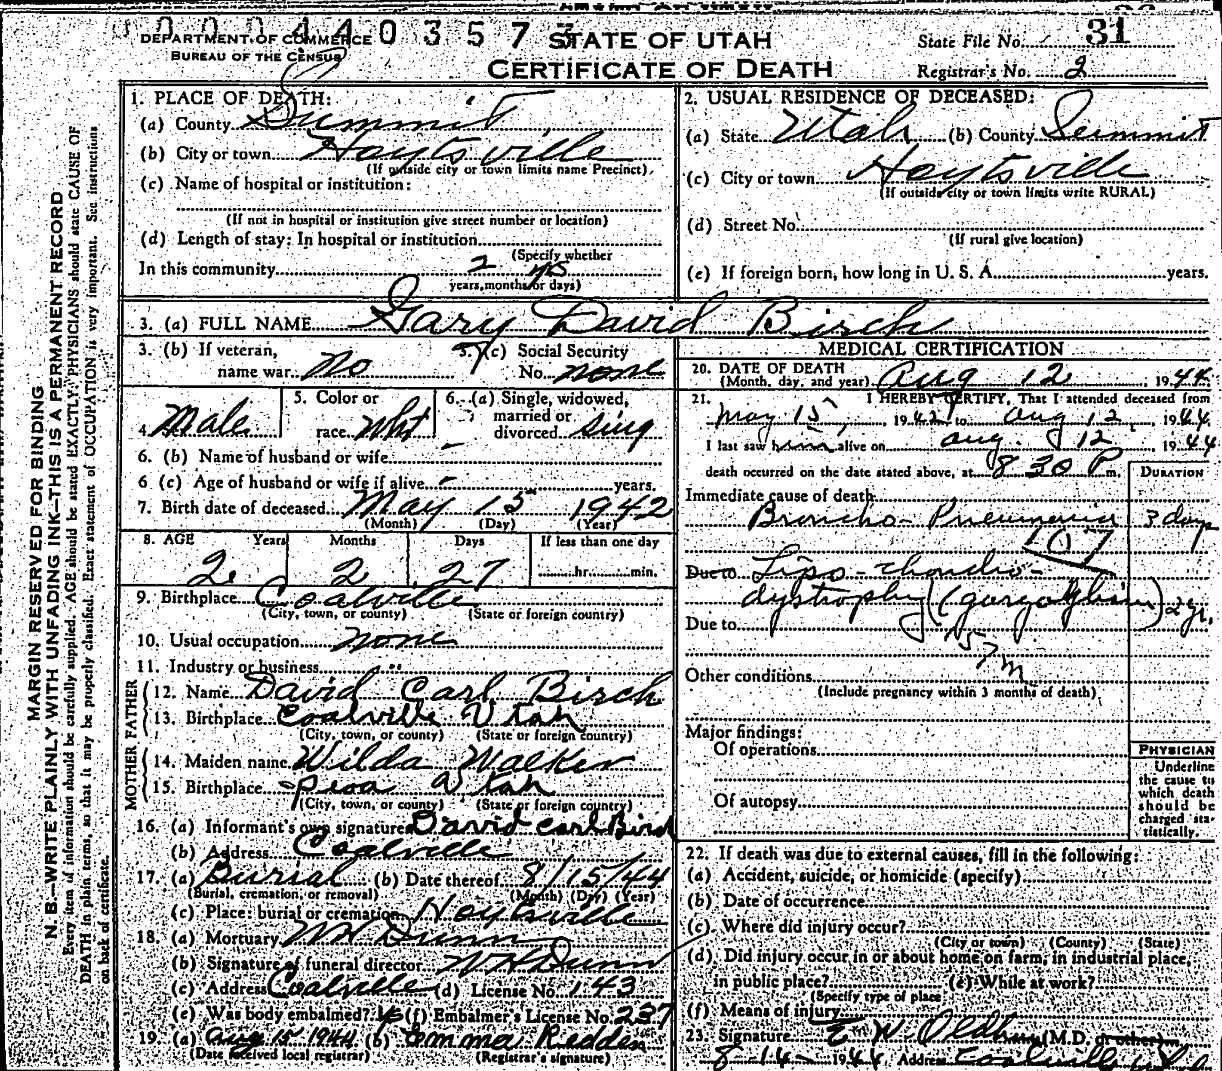 0004403573
DEPARTMENT OF COMMERCE
BUREAU OF THE CENSUS
STATE OF UTAH
CERTIFICATE OF DEATH
State File No. 31
Registrar's No. 2
MARGIN RESERVED FOR BINDING
N. B.—WRITE PLAINLY WITH UNFADING INK—THIS IS A PERMANENT RECORD
Every item of information should be carefully supplied. AGE should be stated EXACTLY. PHYSICIANS should state CAUSE OF
DEATH in plain terms, so that it may be properly classified. Exact statement of OCCUPATION is very important. See instructions
on back of certificate.
1. PLACE OF DEATH:
(a) County Summit
(b) City or town Hoytsville
(If outside city or town limits name Precinct)
(c) Name of hospital or institution:
(If not in hospital or institution give street number or location)
(d) Length of stay: In hospital or institution
(Specify whether
In this community 2 yrs
years, months or days)
2. USUAL RESIDENCE OF DECEASED:
(a) State Utah (b) County Summit
(c) City or town Hoytsville
(If outside city or town limits write RURAL)
(d) Street No.
(If rural give location)
(e) If foreign born, how long in U. S. A. years.
3. (a) FULL NAME Gary David Birch
3. (b) If veteran,
name war No
3. (c) Social Security
No. none
4. Male
5. Color or
race wht
6. (a) Single, widowed,
married or
divorced sing
6. (b) Name of husband or wife -
6 (c) Age of husband or wife if alive - years.
7. Birth date of deceased May 15 1942
(Month) (Day) (Year)
8. AGE Years Months Days If less than one day
2 2 27 hr. min.
9. Birthplace Coalville
(City, town, or county) (State or foreign country)
10. Usual occupation none
11. Industry or business
FATHER
12. Name David Carl Birch
13. Birthplace Coalville Utah
(City, town, or county) (State or foreign country)
MOTHER
14. Maiden name Wilda Walker
15. Birthplace Peoa Utah
(City, town, or county) (State or foreign country)
16. (a) Informant's own signature David Carl Birch
(b) Address Coalville
17. (a) Burial (b) Date thereof 8/15/44
(Burial, cremation, or removal) (Month) (Day) (Year)
(c) Place: burial or cremation Hoytsville
18. (a) Mortuary W H Dunn
(b) Signature of funeral director W H Dunn
(c) Address Coalville (d) License No. 143
(e) Was body embalmed? (f) Embalmer's License No. 237
19. (a) Aug 15 1944 (b) Emma Redden
(Date received local registrar) (Registrar's signature)
MEDICAL CERTIFICATION
20. DATE OF DEATH
(Month, day, and year) Aug 12, 1944
21. I HEREBY CERTIFY, That I attended deceased from
May 15, 1942 to Aug 12, 1944
I last saw him alive on Aug. 12, 1944
death occurred on the date stated above, at 8 30 P m.
DURATION
Immediate cause of death
Broncho-Pneumonia 3 days
107
Due to Lipo-chondro-
dystrophy (gargoylism) 2 yr.
Due to
157m
Other conditions
(Include pregnancy within 3 months of death)
Major findings:
Of operations
Of autopsy
PHYSICIAN
Underline
the cause to
which death
should be
charged sta-
tistically.
22. If death was due to external causes, fill in the following:
(a) Accident, suicide, or homicide (specify)
(b) Date of occurrence
(c) Where did injury occur?
(City or town) (County) (State)
(d) Did injury occur in or about home on farm, in industrial place,
in public place? (e) While at work?
(Specify type of place
(f) Means of injury
23. Signature E W Oldham (M.D. or other)
8-14-1944 Address Coalville